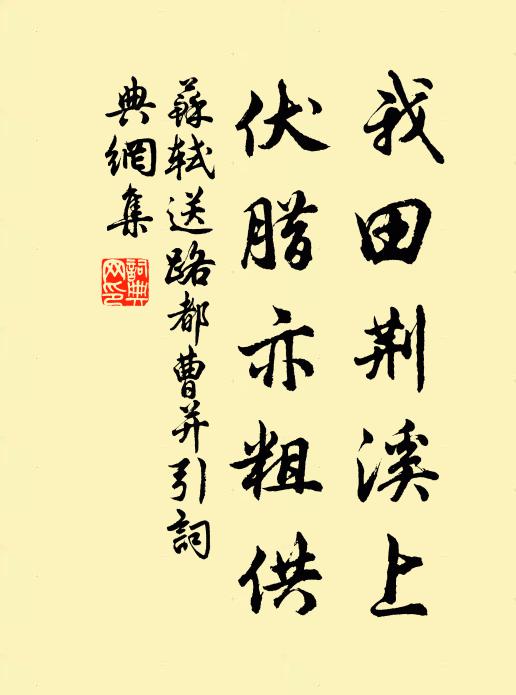 我田荆溪上
伏腊亦粗供
蘇軾送路都曹并引詞
典網集
詞典网印